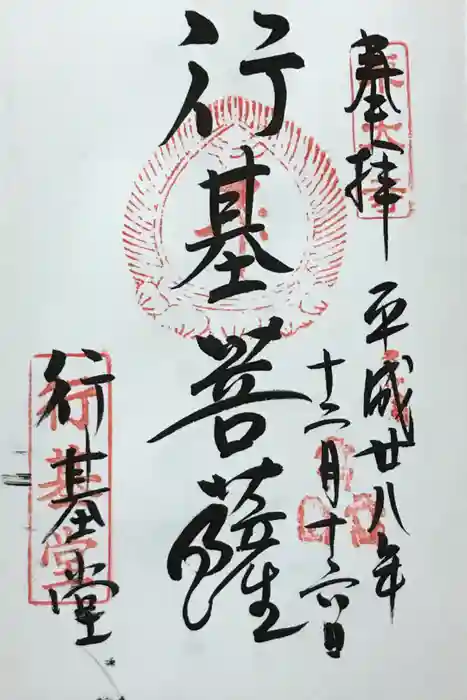 奉拝
平成廿八年
十二月十六日
行基菩薩
行基堂
行基堂